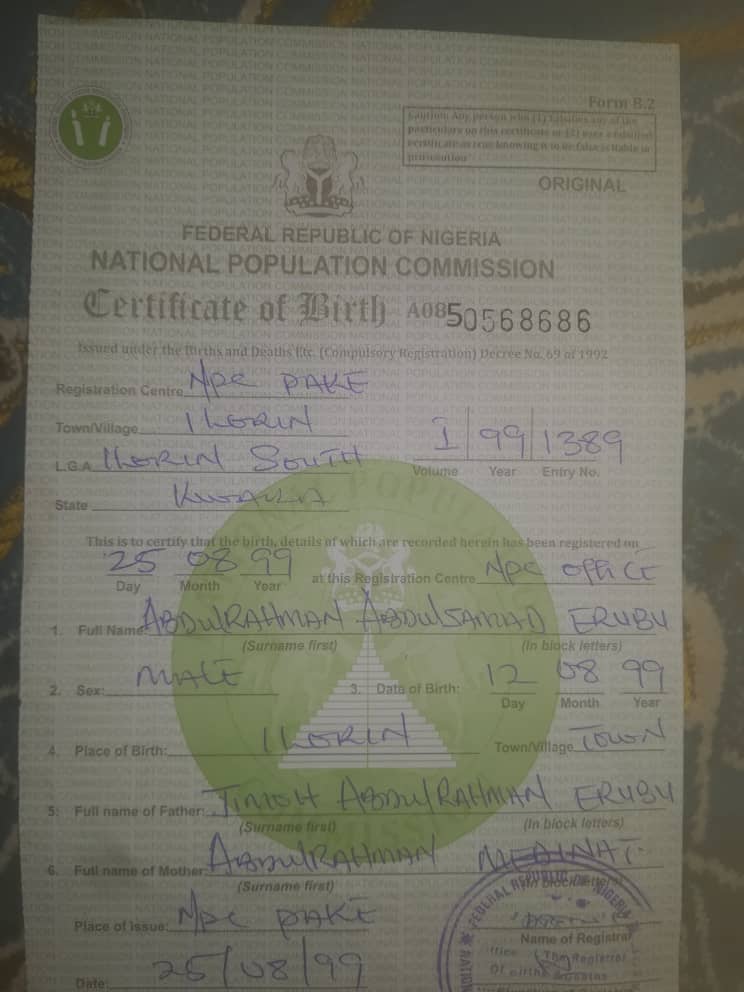 Form B.2
Caution: Any person who (1) falsifies any of the
particulars on this certificate or (2) uses a falsified
certificate as true knowing it to be false is liable to
prosecution
ORIGINAL
FEDERAL REPUBLIC OF NIGERIA
NATIONAL POPULATION COMMISSION
Certificate of Birth A0850568686
Issued under the Births and Deaths Etc. (Compulsory Registration) Decree No. 69 of 1992
Registration Centre NPC PAKE
Town/Village ILORIN
L.G.A ILORIN SOUTH
1 99 1389
Volume Year Entry No.
State KWARA
This is to certify that the birth, details of which are recorded herein has been registered on
25 08 99 at this Registration Centre NPC OFFICE
Day Month Year
1. Full Name: ABDULRAHMAN ABDULSAMAD ERUBU
(Surname first) (In block letters)
2. Sex: MALE 3. Date of Birth: 12 08 99
Day Month Year
4. Place of Birth: ILORIN Town/Village TOWN
5. Full name of Father: JIMOH ABDULRAHMAN ERUBU
(Surname first) (In block letters)
6. Full name of Mother: ABDULRAHMAN MEDINAT
(Surname first) (In block letters)
Place of Issue: NPC PAKE
Name of Registrar
Date: 25/08/99
FEDERAL REPUBLIC OF NIGERIA
Office of The Registrar
Of births & Deaths